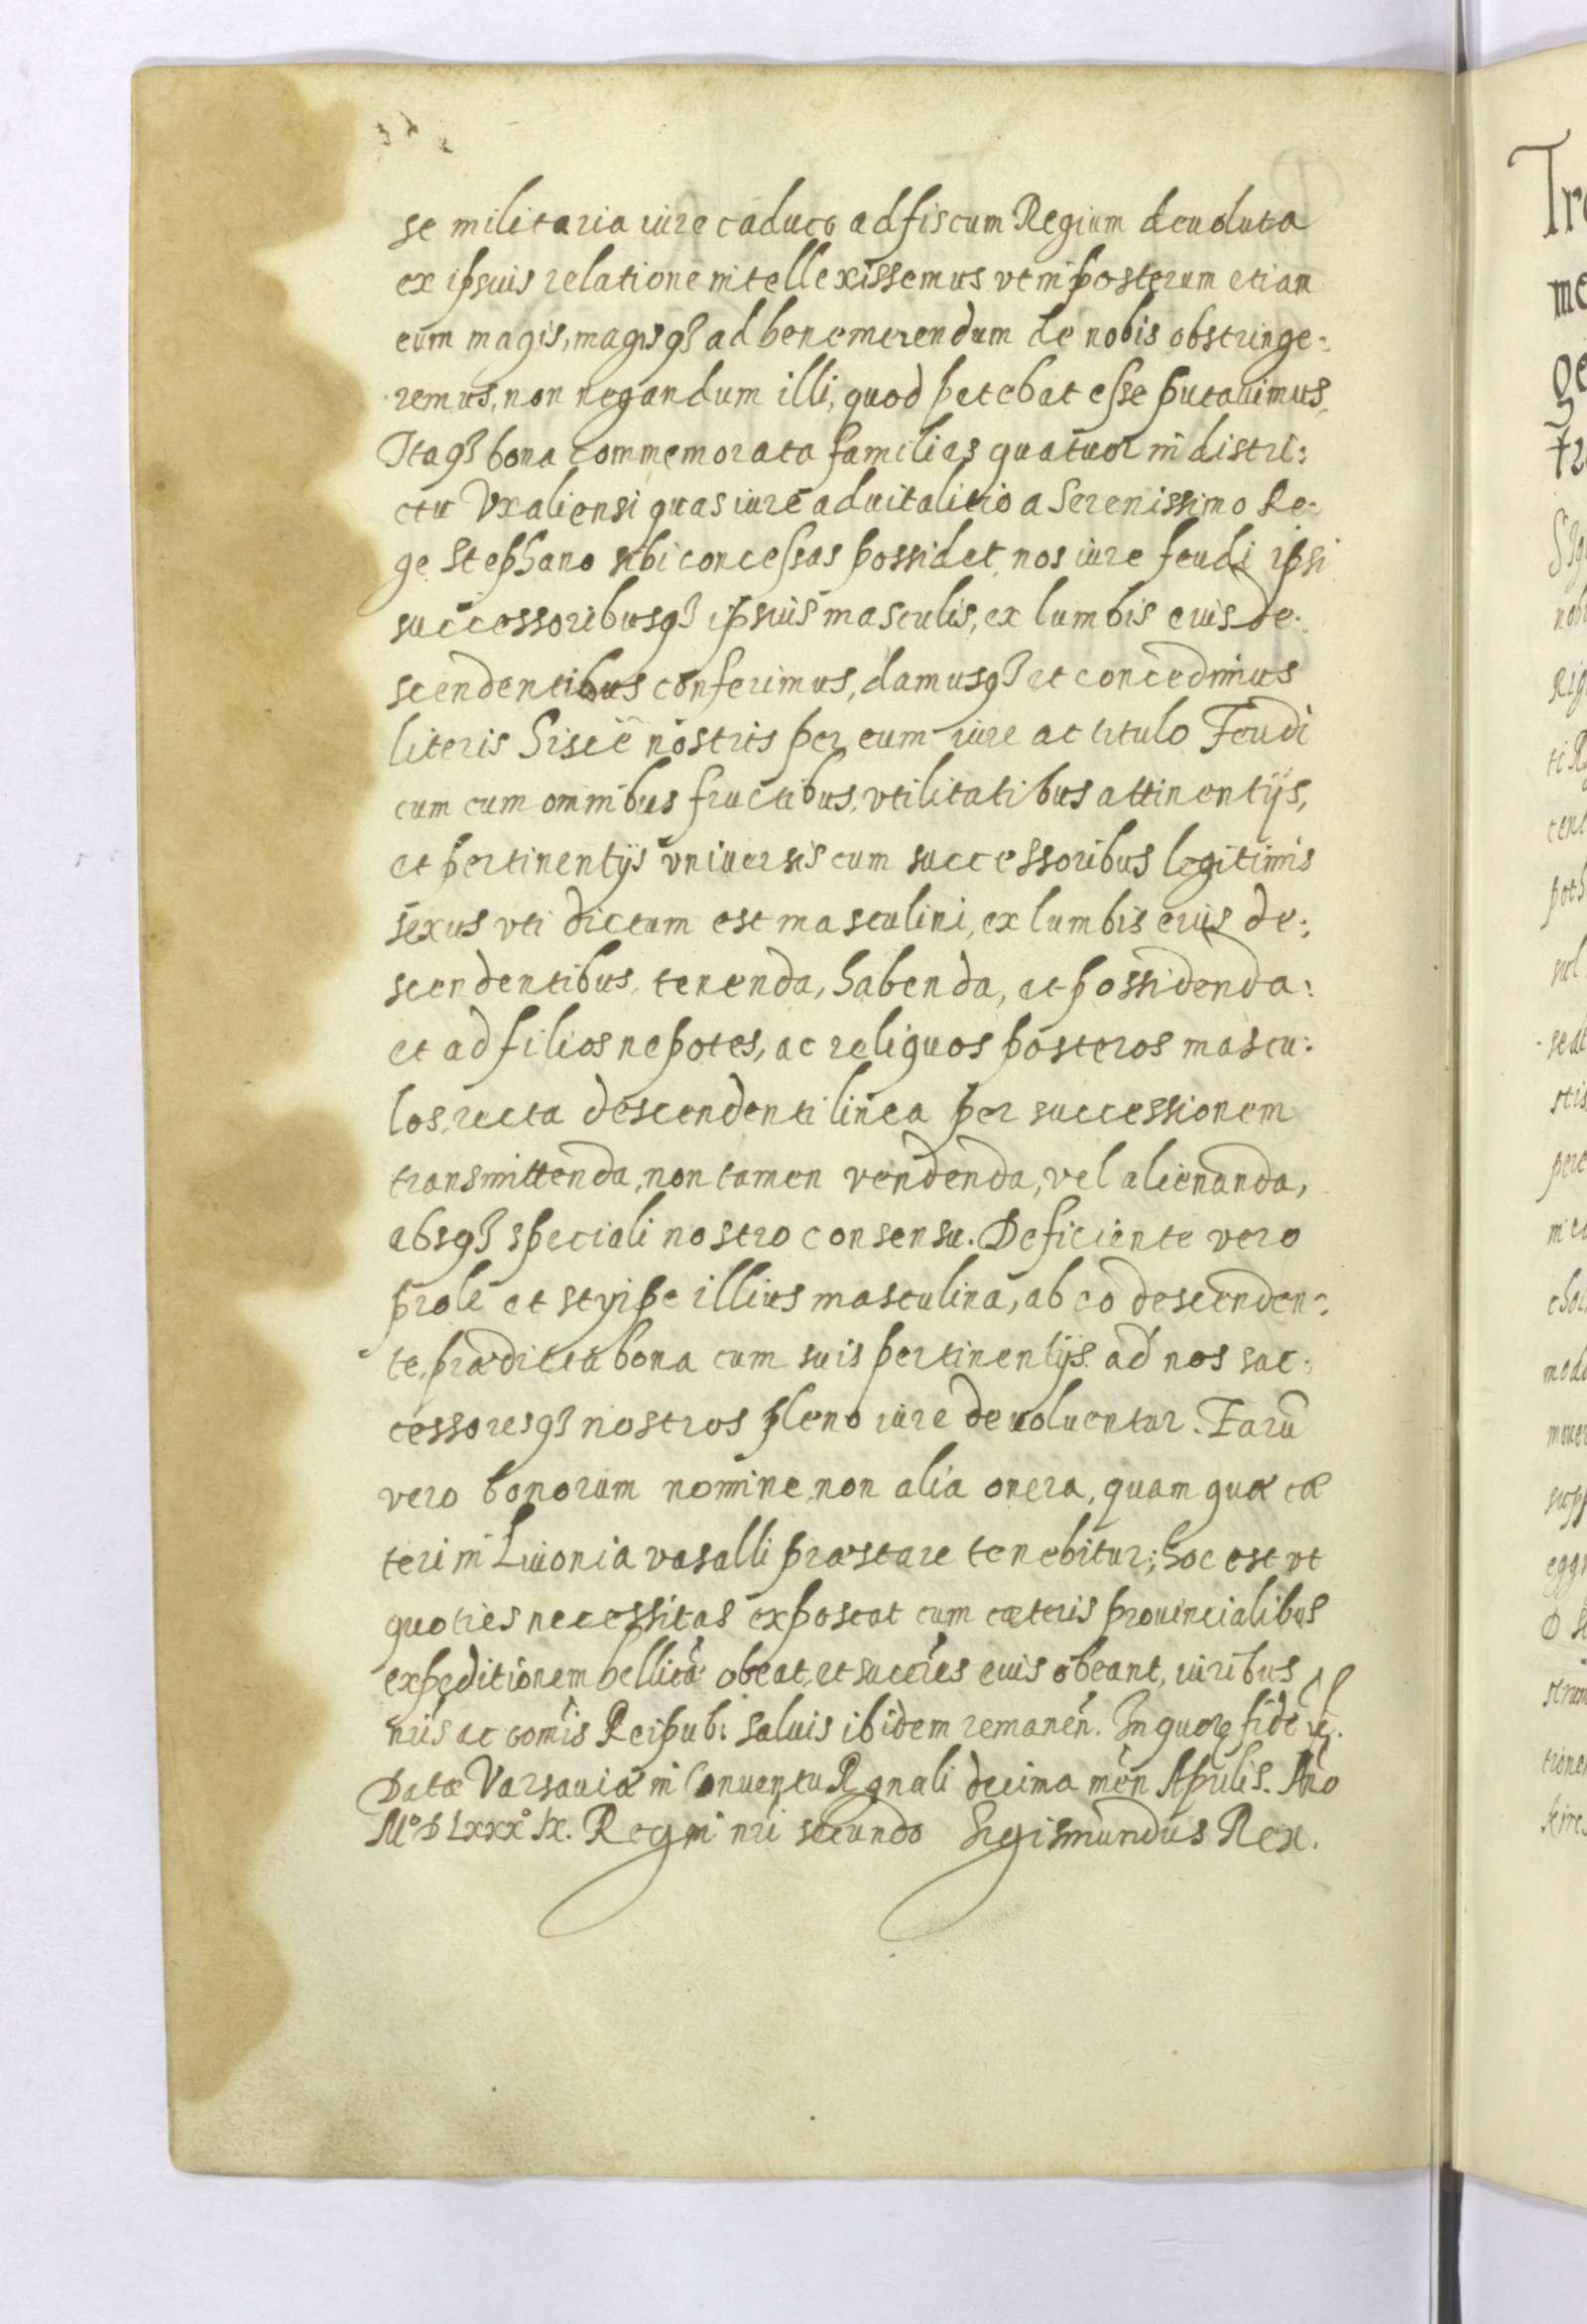 se militaria iure caduco ad fiscum Regium deuoluta
ex ipsius relatione intellexissemus vt in posterum etiam
eum magis, magisq₃ ad benemerendum de nobis obstringe:
remus, non negandum illi, quod petebat esse putauimus,
Itaq₃ bona commemorata familias quatuor in distri:
ctu Vxaliensi quas iure aduitalitio a Serenissimo Re-
ge Stephano sibi concessas possidet, nos iure feudi ipsi
successoribusq₃ ipsius masculis, ex lumbis eius de:
scendentibus conferimus, damusq₃ et concedimus
literis hisce nostris per eum iure ac titulo Feudi
cum cum omnibus fructibus, vtilitatibus attinentijs,
et pertinentijs vniuersis cum successoribus legitimis
sexus vti dictum est masculini, ex lumbis eius de:
scendentibus, tenenda, habenda, et possidenda:
et ad filios nepotes, ac reliquos posteros mascu:
los, recta descendenti linea per successionem
transmittenda, non tamen vendenda, vel alienanda,
absq₃ speciali nostro consensu. Deficiente vero
prole et styrpe illius masculina, ab eo descenden:
te, prædicta bona cum suis pertinentijs ad nos suc:
cessoresq₃ nostros pleno iure deuoluentur. Earū
vero bonorum nomine, non alia onera, quam quæ cæ
teri in Liuonia vasalli præstare tenebitur; hoc est vt
quoties necessitas exposcat cum cæteris prouincialibus
expeditionem bellicā obeat, et succres eius obeant, iuribus
nris ac comis Reipub: saluis ibidem remanen. In quorū fidē
Datæ Varsauiæ in Conuentu Rgnali decima men Aprilis. Ano
M° D Lxxx° Ix. Regni nri secundo Sigismundus Rex.